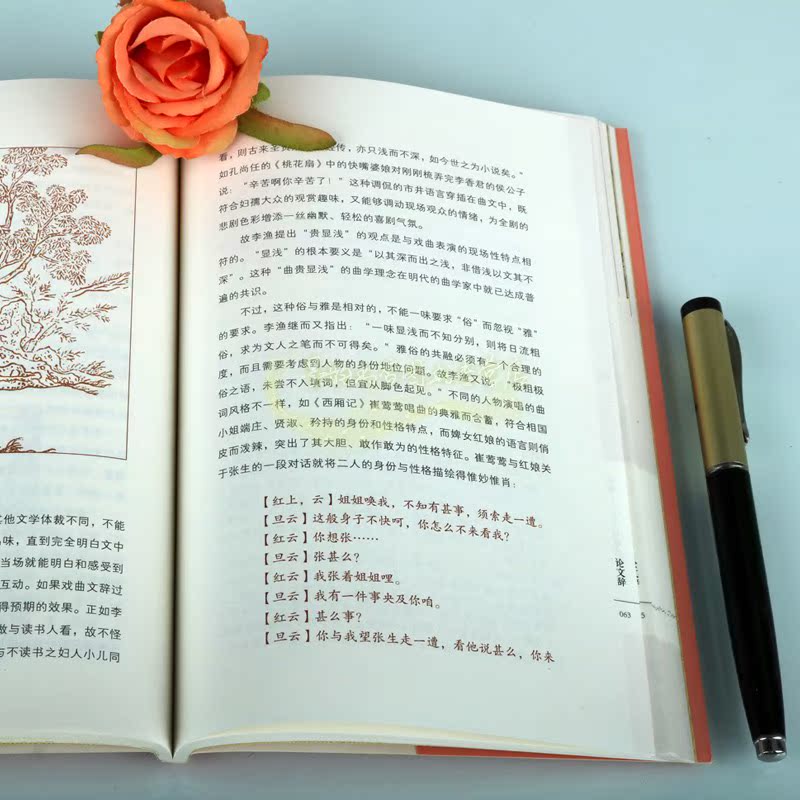 其他文学体裁不同，不能
味，直到完全明白文中
当场就能明白和感受到
互动。如果戏曲文辞过
得预期的效果。正如李
做与读书人看，故不怪
与不读书之妇人小儿同
看，则古来圣贤 经传，亦只浅而不深，如今世之为小说矣。”
如孔尚任的《桃花扇》中的快嘴婆娘对刚刚梳弄完李香君的侯公子
说：“辛苦啊你辛苦了！”这种调侃的市井语言穿插在曲文中，既
符合妇孺大众的观赏趣味，又能够调动现场观众的情绪，为全剧的
悲剧色彩增添一丝幽默、轻松的喜剧气氛。
故李渔提出“贵显浅”的观点是与戏曲表演的现场性特点相
符的。“显浅”的根本要义是“以其深而出之浅，非借浅以文其不
深”。这种“曲贵显浅”的曲学理念在明代的曲学家中就已达成普
遍的共识。
不过，这种俗与雅是相对的，不能一味要求“俗”而忽视“雅”
的要求。李渔继而又指出：“一味显浅而不知分别，则将日流粗
俗，求为文人之笔而不可得矣。”雅俗的共融必须有一个合理的
度，而且需要考虑到人物的身份地位问题。故李渔又说：“极粗极
俗之语，未尝不入填词，但宜从脚色起见。”不同的人物演唱的曲
词风格不一样，如《西厢记》崔莺莺唱曲的典雅而含蓄，符合相国
小姐端庄、贤淑、矜持的身份和性格特点，而婢女红娘的语言则俏
皮而泼辣，突出了其大胆、敢作敢为的性格特征。崔莺莺与红娘关
于张生的一段对话就将二人的身份与性格描绘得惟妙惟肖：
【红上，云】姐姐唤我，不知有甚事，须索走一遭。
【旦云】这般身子不快呵，你怎么不来看我？
【红云】你想张……
【旦云】张甚么？
【红云】我张着姐姐哩。
【旦云】我有一件事央及你咱。
【红云】甚么事？
【旦云】你与我望张生走一遭，看他说甚么，你来
论文辞
063
5